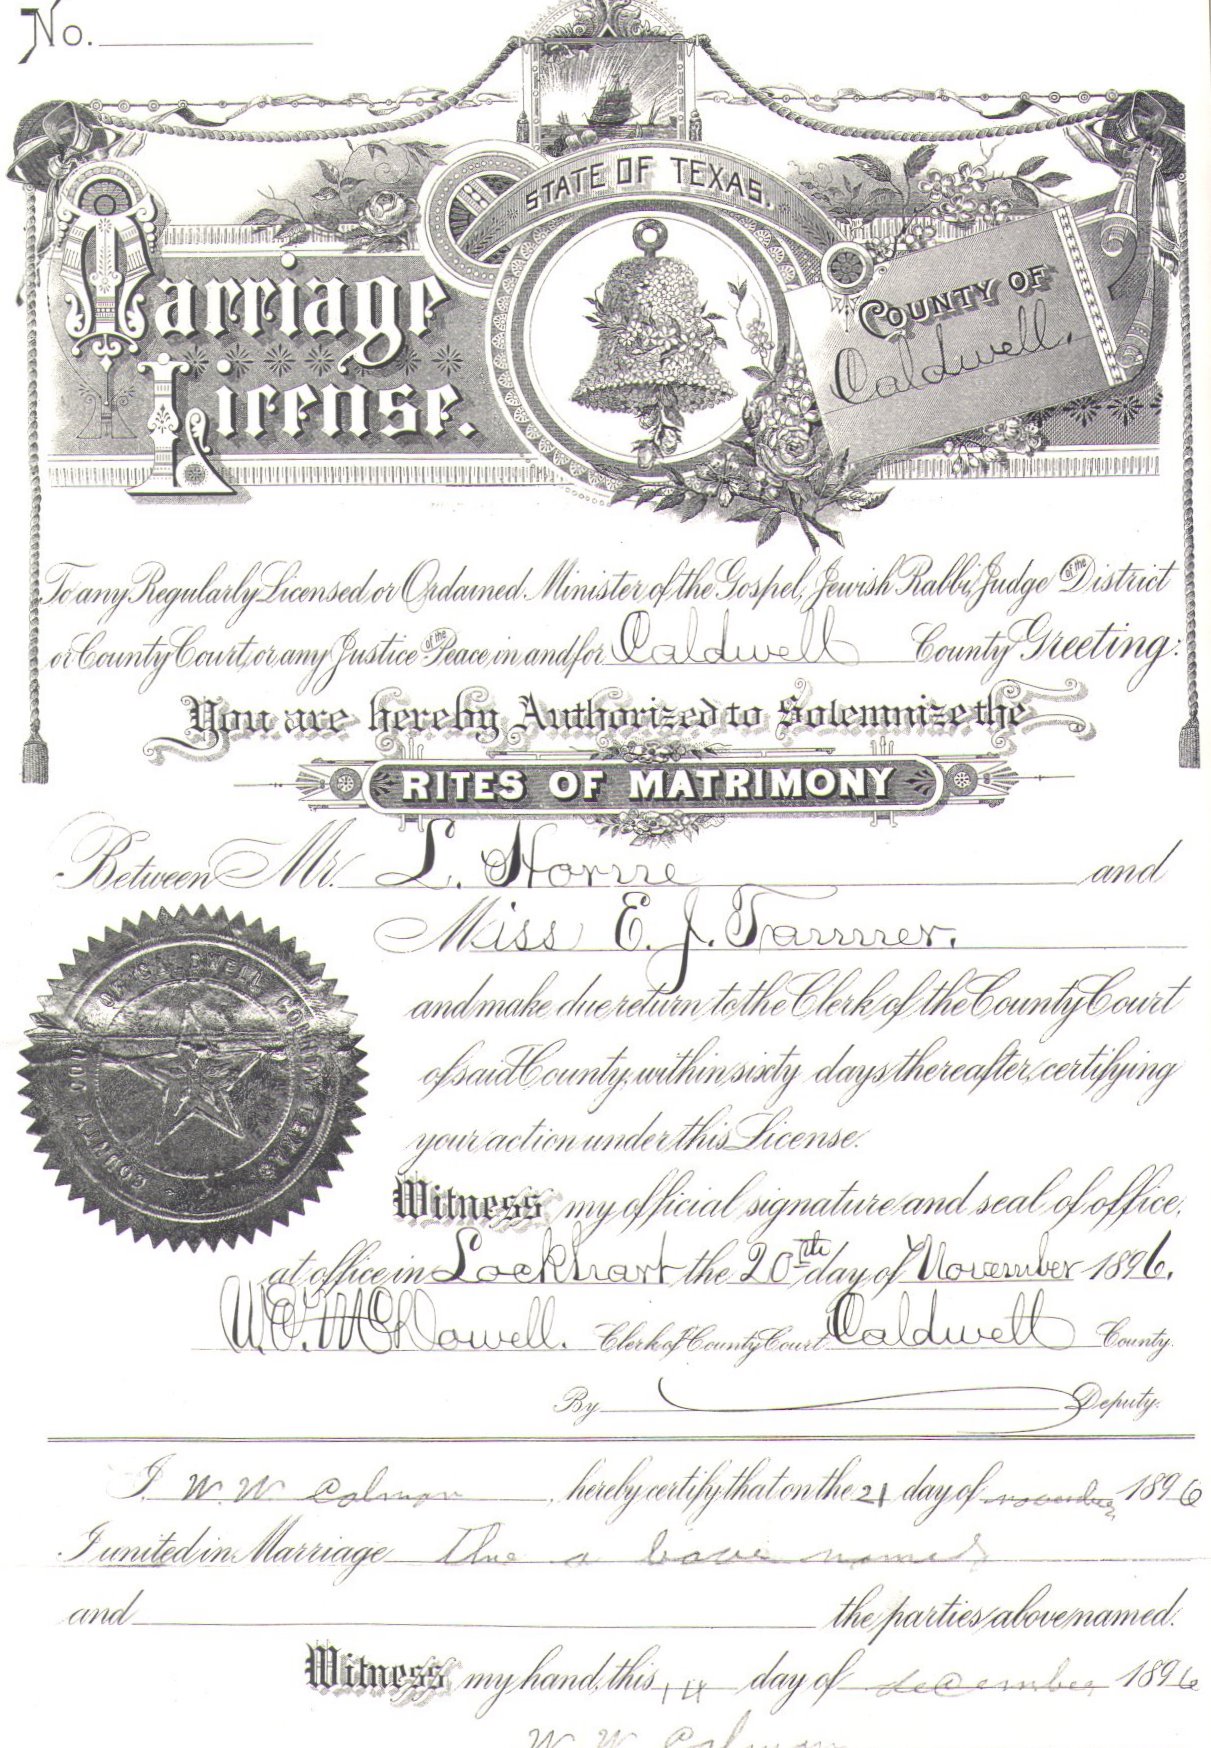 No.
STATE OF TEXAS.
Marriage
License.
COUNTY OF
Caldwell.
To any Regularly Licensed or Ordained Minister of the Gospel, Jewish Rabbi, Judge of the District
or County Court, or any Justice of the Peace, in and for Caldwell County Greeting:
You are hereby Authorized to Solemnize the
RITES OF MATRIMONY
Between Mr. L. Horne and
Miss E. J. Tanner.
and make due return to the Clerk of the County Court
of said County, within sixty days thereafter, certifying
your action under this License.
Witness my official signature and seal of office,
at office in Lockhart the 20th day of November 1896.
COUNTY COURT OF CALDWELL COUNTY TEXAS
W.E. McDowell. Clerk of County Court Caldwell County.
By Deputy.
I W. W. Colman, hereby certify that on the 21 day of november 1896
I united in Marriage The a bove named
and the parties above named.
Witness my hand, this day of december 1896
W. W. Colman